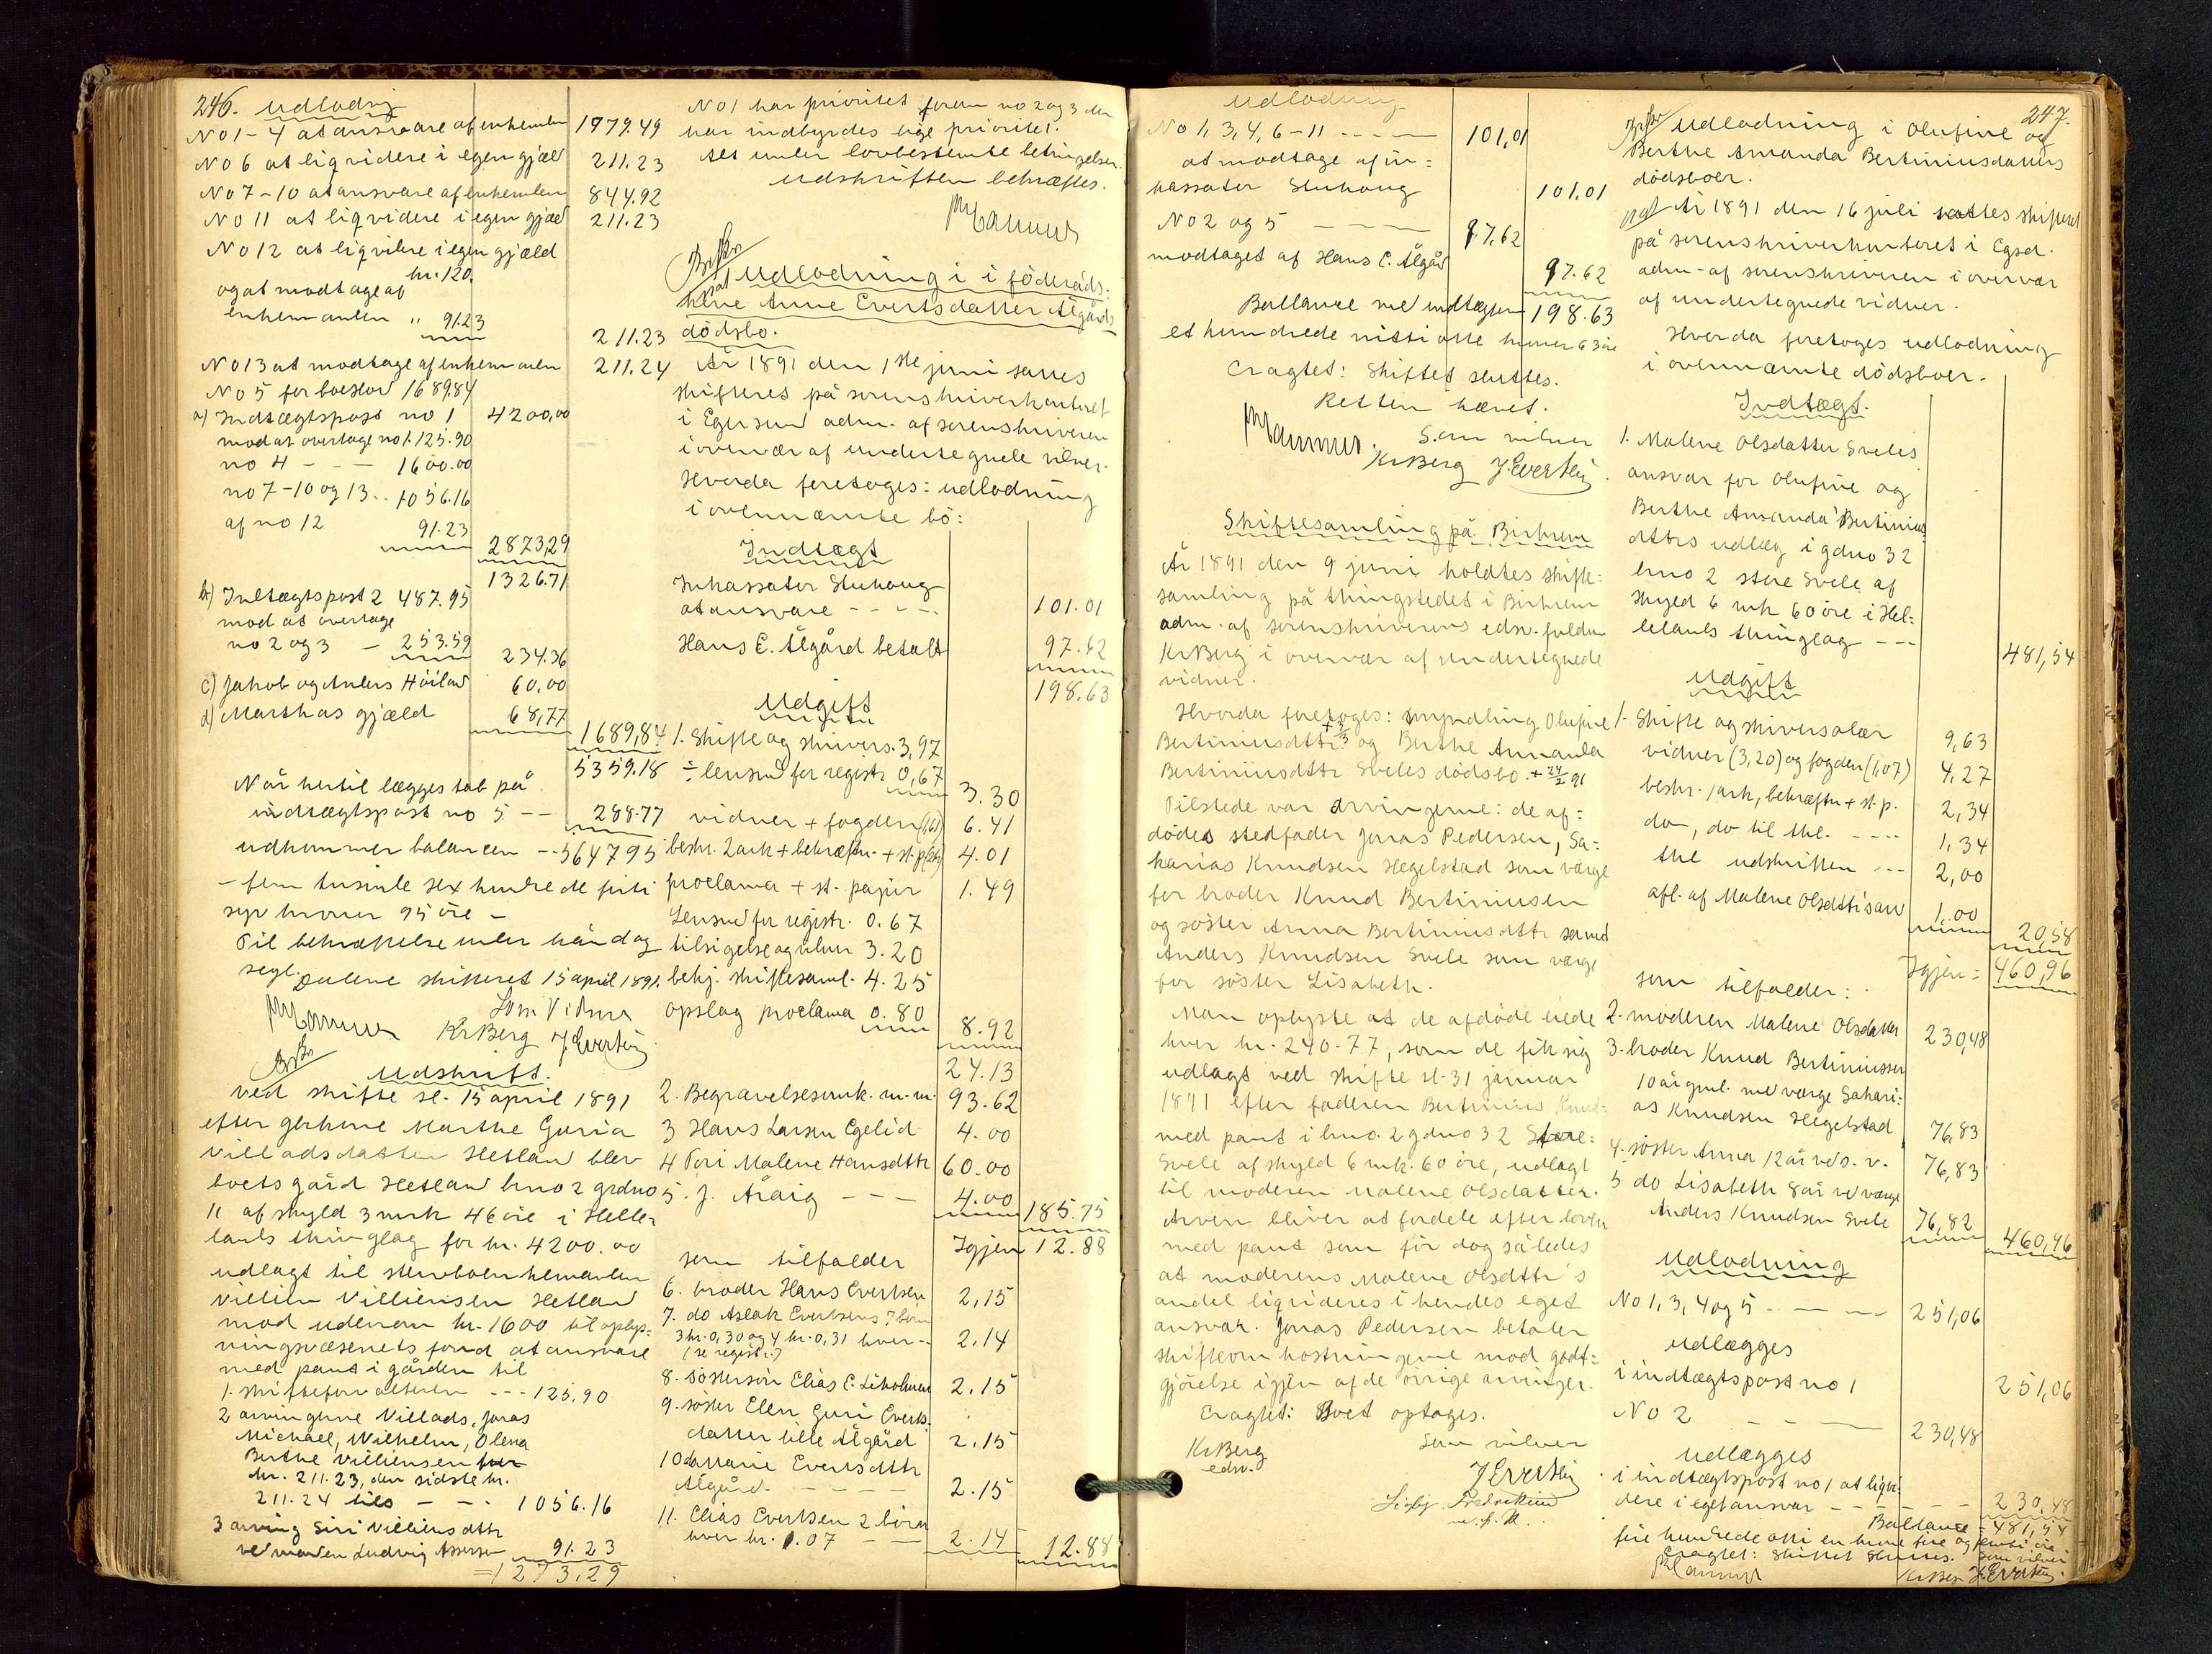 246. Udlodng
No 1 - 4 at ansvare af enkemden 1979.49
No 6 at liqvidere i egen gjæld 211.23
No 7 - 10 at ansvare af enkemden 844.92
No 11 at liqvidere i egen gjæld 211.23
No 12 at liqvidere i egen gjæld
kr. 120.
og at modtage af
enkemanden " 91.23
211.23
No 13 at modtage af enkemanden 211.24
No 5 for boeslod 1689.84
a) Indtægtspost no 1 4200,00
mod at overtage no 1. 125.90
no 4 - - - 1600.00
no 7-10 og 13 .. 1056.16
af no 12 91.23
2873,29
1326.71
b) Indtægtspost 2 487.95
mod at overtage
no 2 og 3 - 253.59
234.36
c) Jakob og Anders Höiland 60.00
d) Marthas gjæld 68,77
1689,84
5359.18
Når hertil lægges tab på
indtægtspost no 5 -- 288.77
udkommer balancen -- 5647.95
- fem tusinde sex hundrede firti
syv kroner 95 öre -
Til bekræftelse under hånd og
segl.
Dalene skifteret 15 april 1891.
Som Vidner
KrBerg J. Evertsen
Udskrift.
ved skifte sl. 15 april 1891
efter gårdkone Marthe Guria
Villadsdatter Hetland blev
boets gård Hetland bno 2 grdno
11 af skyld 3 mrk 46 öre i Helle-
lands thinglag for kr. 4200.00
udlagt til stervboenkemanden
Villien Villiensen Hetland
mod udenom kr. 1600 til oplys-
ningsvæsenets fond at ansvare
med pant i gården til
1. skifteforvalteren --- 125.90
2 arvingerne Villads, Jonas
Michael, Wilhelm, Olena
Berthe Villiensen hver
kr. 211.23, den sidste kr.
211.24 tils - - - 1056.16
3 arving Siri Villiensdttr
ved manden Ludvig Assersen 91.23
= 1273.29
No 1 har prioritet foran no 2 og 3 der
har indbyrdes lige prioritet.
Alt under lovbestemte betingelser.
Udskriften bekræftes.
Udlodning i i föderåds-
kone Anne Evertsdatter Ålgårds
dödsbo.
År 1891 den 1ste juni sattes
skifteret på sorenskriverkontoret
i Egersund adm. af sorenskriveren
i overvær af undertegnede vidner.
Hvorda foretoges: udlodning
i ovennæmte bo:
Indtægt
Inkassator Stuhaug
at ansvare - - - - 101.01
Hans E. Ålgård betalt 97.62
198.63
Udgift
1. Skifte og skrivers. 3,97
÷ lensmd for registr 0,67
3.30
vidner + fogden (1,61) 6.41
beskr. 2 ark + bekræftn. + st. p. 4.01
proclama + st. papir 1.49
Lensmd for registr. 0.67
tilsigelse og vidner 3.20
bekj. skiftesaml. 4.25
opslag proclama 0.80
8.92
24.13
2. Begravelsesomk. m.m. 93.62
3 Hans Larsen Egelid 4.00
4 Tori Malene Hansdttr 60.00
5. J. Åraig - - - 4.00
185.75
Igjen 12.88
som tilfalder
6. broder Hans Evertsen 2,15
7. do Aslak Evertsens 7 börn
3 kr. 0,30 og 4 kr. 0,31 hver -- 2.14
(se registr.)
8. sösterson Elias E. Liholmen 2.15
9. söster Elen Guri Everts-
datter lille Ålgård 2.15
10 do Marie Evertsdttr
Ålgård - - - - - 2.15
11. Elias Evertsen 2 börn
hver kr. 1.07 - - 2.14
12.88
Udlodning
No 1, 3, 4, 6 - 11 - - - - 101,01
at modtage af in-
kassator Stuhaug 101.01
No 2 og 5 - - - 97.62
modtaget af Hans E. Ålgård
97.62
Ballance med indtægten 198.63
et hundrede nitti otte kroner 63 öre
Eragtet: Skiftet sluttes.
Retten hævet.
Som vidner
KrBerg J. Evertsen
Skiftesamling på Birkrem
År 1891 den 9 juni holdtes skifte-
samling på thingstedet i Birkrem
adm. af sorenskriverens edsv. fuldm.
KrBerg i overvær af undertegnede
vidner.
Hvorda foretoges: myndling Olufine
Bertiniusdttr + 3/3 og Berthe Amanda
Bertiniusdttr Sveles dödsbo. + 24/2 91
Tilstede var arvingerne: de af-
dödes stedfader Jonas Pedersen, Sa-
karias Knudsen Hegelstad som værge
for broder Knud Bertiniusen
og söster Anna Bertiniusdttr samt
Anders Knudsen Svele som værge
for söster Lisabeth.
Man oplyste at de afdöde eiede
hver kr. 240.77, som de fik sig
udlagt ved skifte sl. 31 januar
1891 efter faderen Bertinius Knud-
med pant i bno. 2 gdno 32 Store-
Svele af skyld 6 mk. 60 öre, udlagt
til moderen Malene Olsdatter.
Arven bliver at fordele efter loven
med pant som för dog således
at moderens Malene Olsdttr's
andel liqvideres i hendes eget
ansvar. Jonas Pedersen betaler
skifteomkostningerne mod godt-
gjörelse igjen af de övrige arvinger.
Eragtet: Boet optages.
KrBerg
edsv.
Som vidner
J. Evertsen
247.
Udlodning i Olufine og
Berthe Amanda Bertiniusdatters
dödsboer.
År 1891 den 16 juli sattes skifteret
på sorenskriverkontoret i Egsd.
adm. af sorenskriveren i overvær
af undertegnede vidner.
Hvorda foretoges udlodning
i ovennæmte dödsboer.
Indtægt.
1. Malene Olsdatter Sveles
ansvar for Olufine og
Berthe Amanda Bertinius
dttrs udlæg i gdno 32
bno 2 store Svele af
skyld 6 mk 60 öre i Hel-
lelands thinglag - - - 481,54
Udgift
1. Skifte og skriversalær 9,63
vidner (3,20) og fogden (1,07) 4,27
beskr. 1 ark, bekræftn + st. p. 2,34
do, do til thl. - - - - 1,34
thl udskriften - - - 2,00
afl. af Malene Olsdttr's ansv 1,00
20,58
Igjen = 460,96
som tilfalder:
2. moderen Malene Olsdatter 230,48
3. broder Knud Bertiniussen
10 år gml. ved værge Sakari-
as Knudsen Hegelstad 76,83
4. söster Anna 12 år ved s. v. 76,83
5 do Lisabeth 8 år ved værge
Anders Knudsen Svele 76,82
460,96
Udlodning
No 1, 3, 4 og 5 - - - - 251,06
udlægges
i indtægtspost no 1 251,06
No 2 - - - 230,48
udlægges
i indtægtspost no 1 at liqvi-
dere i eget ansvar - - - - - 230,48
Ballance = 481,54
fire hundrede otti en krone fire og femti öre
Eragtet: Skiftet sluttes. Som vidner
KrBerg J. Evertsen